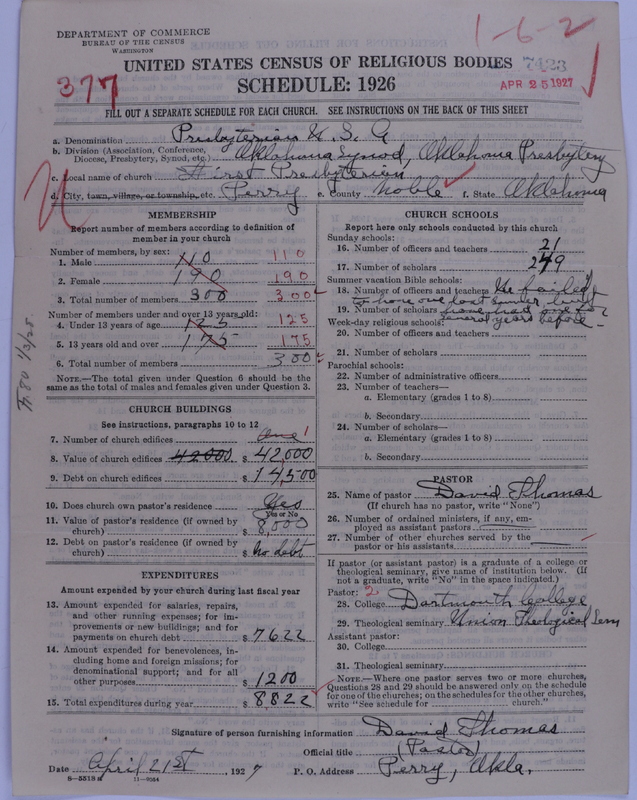 1-6-2
DEPARTMENT OF COMMERCE
BUREAU OF THE CENSUS
WASHINGTON
UNITED STATES CENSUS OF RELIGIOUS BODIES
7423
377
SCHEDULE: 1926
APR 25 1927
FILL OUT A SEPARATE SCHEDULE FOR EACH CHURCH. SEE INSTRUCTIONS ON THE BACK OF THIS SHEET
a. Denomination Presbyterian U. S. A
b. Division (Association, Conference, Diocese, Presbytery, Synod, etc.) Oklahoma Synod, Oklahoma Presbytery
c. Local name of church First Presbyterian
d. City, town, village, or township, etc. Perry e. County Noble f. State Oklahoma
MEMBERSHIP
Report number of members according to definition of
member in your church
Number of members, by sex:
1. Male 110 110
2. Female 190 190
3. Total number of members 300 300
Number of members under and over 13 years old:
4. Under 13 years of age 125 125
5. 13 years old and over 175 175
6. Total number of members 300
NOTE.—The total given under Question 6 should be
same as the total of males and females given under Question 3.
CHURCH BUILDINGS
See instructions, paragraphs 10 to 12
7. Number of church edifices One 1
8. Value of church edifices 42000 $ 42,000
9. Debt on church edifices $ 14,500
10. Does church own pastor's residence? Yes
Yes or No
11. Value of pastor's residence (if owned by
church) $ 8,000
12. Debt on pastor's residence (if owned by
church) $ no debt
EXPENDITURES
Amount expended by your church during last fiscal year
13. Amount expended for salaries, repairs,
and other running expenses; for im-
provements or new buildings; and for
payments on church debt $ 7622
14. Amount expended for benevolences, in-
cluding home and foreign missions; for
denominational support; and for all
other purposes $ 1200
15. Total expenditures during year $ 8822
CHURCH SCHOOLS
Report here only schools conducted by this church
Sunday schools:
16. Number of officers and teachers 21
17. Number of scholars 249
Summer vacation Bible schools:
18. Number of officers and teachers We failed
to have one last summer but
19. Number of scholars have had one for
several years before
Week-day religious schools:
20. Number of officers and teachers
21. Number of scholars
Parochial schools:
22. Number of administrative officers
23. Number of teachers—
a. Elementary (grades 1 to 8)
b. Secondary
24. Number of scholars—
a. Elementary (grades 1 to 8)
b. Secondary
PASTOR
25. Name of pastor David Thomas
(If church has no pastor, write "None")
26. Number of ordained ministers, if any, em-
ployed as assistant pastors
27. Number of other churches served by the
pastor or his assistants
If pastor (or assistant pastor) is a graduate of a college or
theological seminary, give name of institution below. (If
not a graduate, write "No" in the space indicated.)
Pastor: 2
28. College Dartmouth College
29. Theological seminary Union Theological Sem
Assistant pastor:
30. College
31. Theological seminary
NOTE.—Where one pastor serves two or more churches,
Questions 28 and 29 should be answered only on the schedule
for one of the churches; on the schedules for the other churches,
write "See schedule for church."
Signature of person furnishing information David Thomas
Official title (Pastor)
Date April 21st, 1927 P. O. Address Perry, Okla.
8-5518 a 11-9064